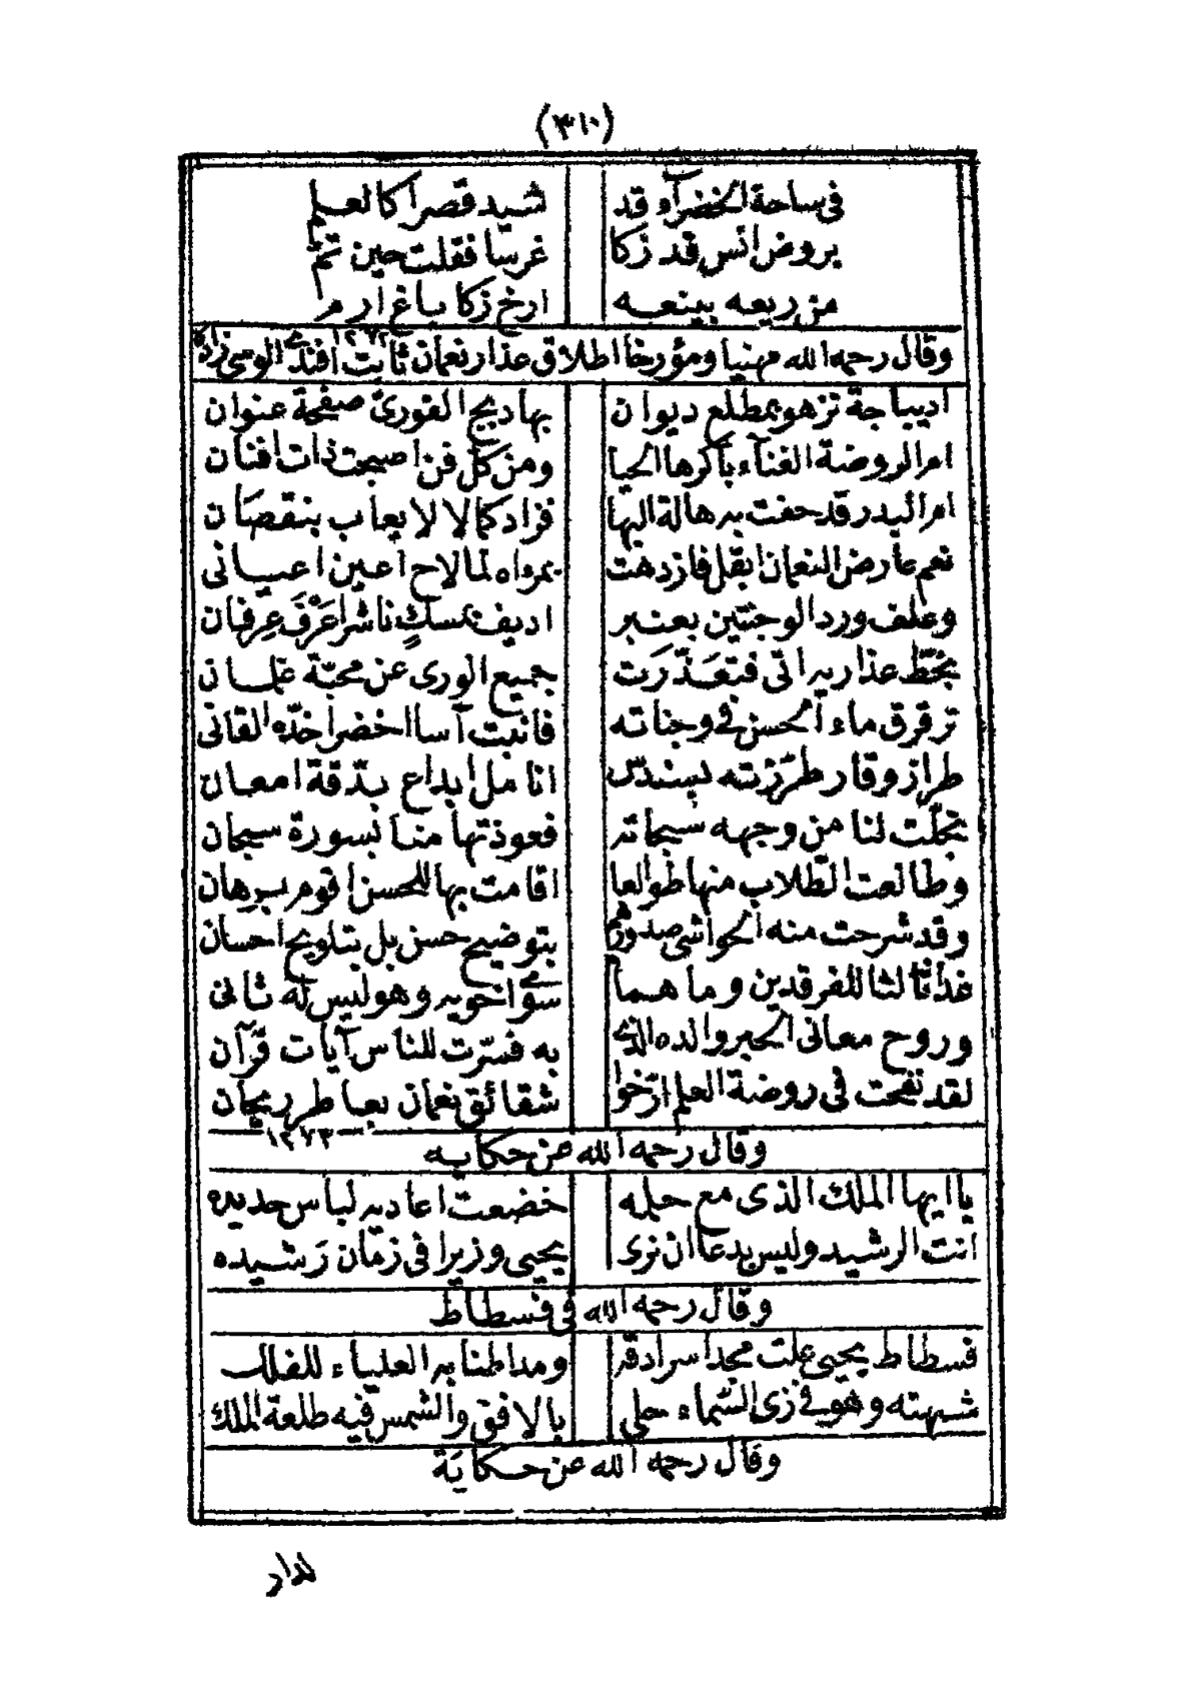 (٣١٠)
في ساحة الخضرآء وقد شيد قصرا كالعلم
بروض انس قد زكا غرسا فقلت حين تم
من ريعه بينعه ارخ زكا باغ ارم
١٢٧٢
وقال رحمه الله مهنيا ومؤرخا اطلاق عذار نعمان ثابت افندي الوسي زاده
اديباجة تزهو بمطلع ديوان بها دبج القورئ صفحة عنوان
ام الروضة الغنآء باكرها الحيا ومن كل فن اصبحت ذات افنان
ام البدر قد حفت به هالة البها فزاد كمالا لا يعاب بنقصان
نعم عارض النعمان ابقل فازدهت بمرءاه لمالاح اعين اعياني
وغلف ورد الوجنتين بعنبر اديف بمسكٍ ناشرا عَرْفَ عِرفان
بخطّ عذاريه اتى فتعَذّرَت جميع الورى عن محبّة غلمان
ترقرق ماء الحسن في وجناته فانبت آسا اخضرا خدّه القانى
طراز وقار طرّزته بسندس انامل ابداع بدقة امعان
تجلّت لنا من وجهه سبحاته فعوذتها منا بسورة سبحان
وطالعت الطّلاب منها طوالعا اقامت بها للحسن اقوم برهان
وقد شرحت منه الحواشى صدورهم بتوضيح حسن بل بتلويح احسان
غدا ثالثا للفرقدين وما هما سوى اخويه وهو ليس له ثانى
وروح معانى الحبر والده الذي به فسّرت للناس آيات قرآن
لقد نفحت في روضة العلم ارّخوا شقائق نعمان بعاطر ريحان
١٢٧٣
وقال رحمه الله عن حكايه
يا ايها الملك الذى مع حلمه خضعت اعاديه لباس حديده
انت الرشيد وليس بدعا ان نرى يحيى وزيرا في زمان رَشيده
وقال رحمه الله في فسطاط
فسطاط يحيى علت مجدا سرادقه ومد اطنابه العلياء للفلك
شبهته وهو في زى السّماء حلى بالافق والشمس فيه طلعة الملك
وقال رحمه الله عن حكايَة
لدار